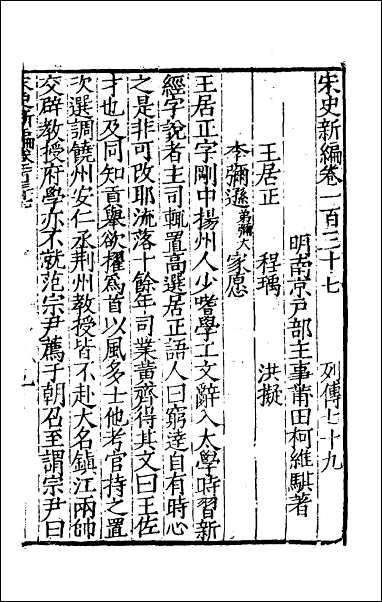 宋史新編卷一百三十七　列傳七十九
明南京戶部主事莆田柯維騏著
王居正　程瑀　洪擬
李彌遜弟彌大　家愿
王居正字剛中揚州人少嗜學工文辭入太學時習新
經字說者主司輒置高選居正語人曰窮達自有時心
之是非可改耶流落十餘年司業黃齊得其文曰王佐
才也及同知貢舉欲擢為首以風多士他考官持之置
次選調饒州安仁丞荆州教授皆不赴大名鎮江兩帥
交辟教授府學亦不就范宗尹薦于朝召至謂宗尹曰